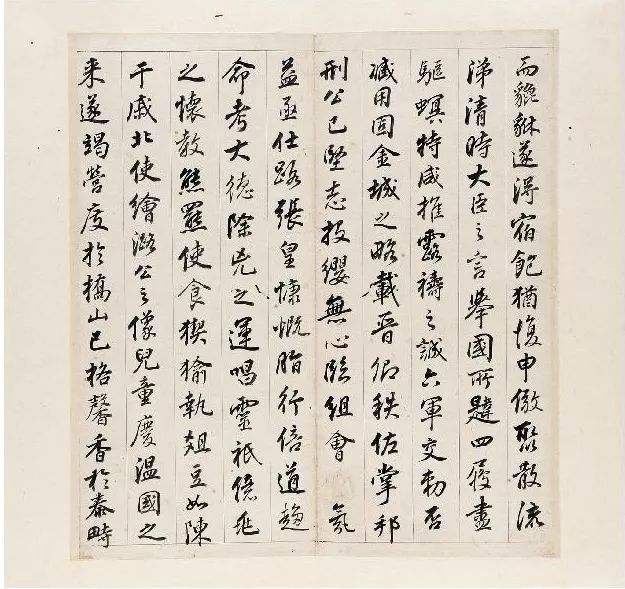 而貔貅遂得宿飽猶復申儆聚散流
涕清時大臣之言舉國所韙四履盡
驅螟特威推露禱之誠六軍交勅否
臧用固金城之略載晉卿秩佐掌邦
刑公已堅志投纓無心組會氛
益亟仕路張皇慷慨脂行倍道趨
命考大德除兇之運唱靈祇億兆
之懷教熊羆使食猰㺄執俎豆如陳
干戚北使繪潞公之像兒童慶溫國之
来遂竭營度於橋山已格馨香於泰畤